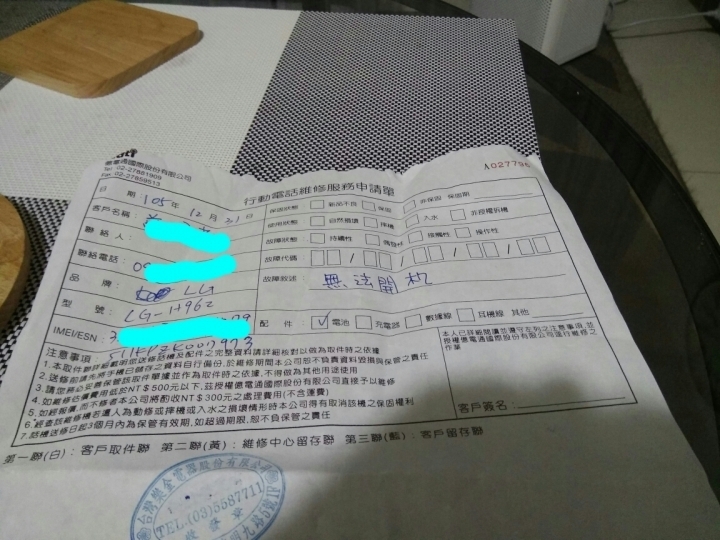 億電通國際股份有限公司
Tel: 02-27881909
Fax: 02-27859513
行動電話維修服務申請單
A0277
日 期 105年 12月 21日
客戶名稱
聯絡人:
聯絡電話: 09
品 牌: LG
型 號: LG-H962
IMEI/ESN:
保固狀態 新品不良 保固 非保固 保固期
使用狀態 自然損壞 摔機 入水 非授權拆機
故障狀態 持續性 偶發性 按觸性 操作性
故障代碼
故障敘述: 無法開机
配 件: ✓ 電池 充電器 數據線 耳機線 其他
注意事項
1.本取件聯詳細載明您送修話機及配件之完整資料請詳細核對以做為取件時之依據
2.送修前請先將手機已儲存之資料自行備份、於維修期間本公司恕不負責資料毀損與保管之責任
3.請您務必妥善保管該取件單據並作為取件時之依據、不得做為其他用途使用
4.如維修估價費用低於NT$500元以下、茲授權億電通國際股份有限公司直接予以維修
5.如經報價、而不修者本公司將酌收NT$300元之處理費用(不含運費)
6.經查該維修機若遭人為動修或摔機或入水之損壞情形時本公司得有取消該話機之保固權利
7.話機送修日起3個月內為保管有效期、如超過期限、恕不負保管之責任
本人已詳細閱讀並遵守左列之注意事項、並
授權億電通國際股份有限公司進行維修之
作業
客戶簽名:
第一聯(白): 客戶取件聯 第二聯(黃): 維修中心留存聯 第三聯(藍): 客戶留存聯
TEL:(03)5587711